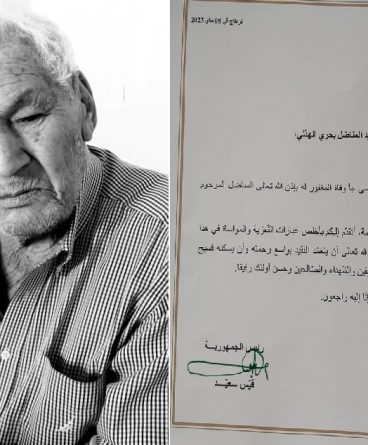 قرطاج في 08 ماي 2023
المناضل بحري الهذلي،
وفاة المغفور له بإذن الله تعالى المناضل المرحوم
أتقدّم إليكم بأخلص عبارات التعزية والمواساة في هذا
الله تعالى أن يتغمّد الفقيد بواسع رحمته وأن يسكنه فسيح
والشهداء والصالحين وحسن أولئك رفيقا.
إليه راجعون.
رئيس الجمهورية
قيس سعيّد